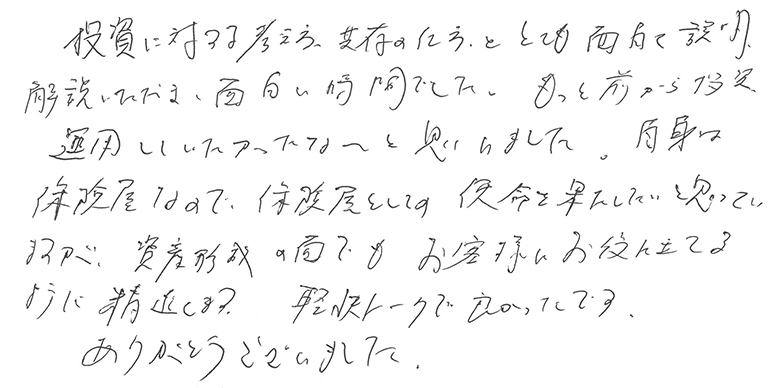 投資に対する考え方、共存の仕方、ととても面白く説明、
解説いただき、面白い時間でした。もっと前から投資
運用していたかったな〜と思いました。自身は
保険屋なので、保険屋としての使命を果たしたいと思ってい
ますが、資産形成の面でもお客様にお役に立てる
ように精進します。軽快トークで良かったです。
ありがとうございました。